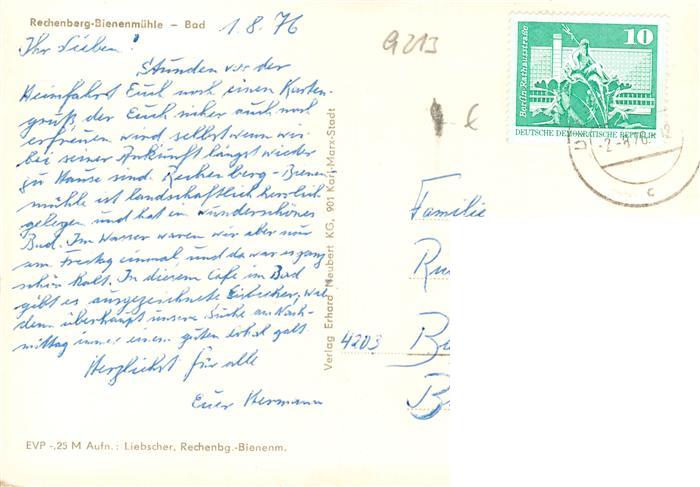 Rechenberg-Bienenmühle – Bad
1.8.76
Ihr Lieben!
Stunden vor der
Heimfahrt Euch noch einen Karten-
gruß der Euch sicher auch noch
erfreuen wird selbst wenn wir
bei seiner Ankunft längst wieder
zu Hause sind. Rechenberg-Bienen-
mühle ist landschaftlich herrlich
gelegen und hat ein wunderschönes
Bad. Im Wasser waren wir aber nur
am Freitag einmal, und da war es ganz
schön kalt. In diesem Cafe im Bad
gibt es ausgezeichnete Eisbecher, wie
denn überhaupt unsere Suche am Nach-
mittag immer einem guten galt
Herzlichst für alle
Euer Hermann
EVP -,25 M Aufn.: Liebscher, Rechenbg.-Bienenm.
Verlag Erhard Neubert KG, 901 Karl-Marx-Stadt
G213
Berlin, Rathausstraße
10
DEUTSCHE DEMOKRATISCHE REPUBLIK
c
Familie
4203